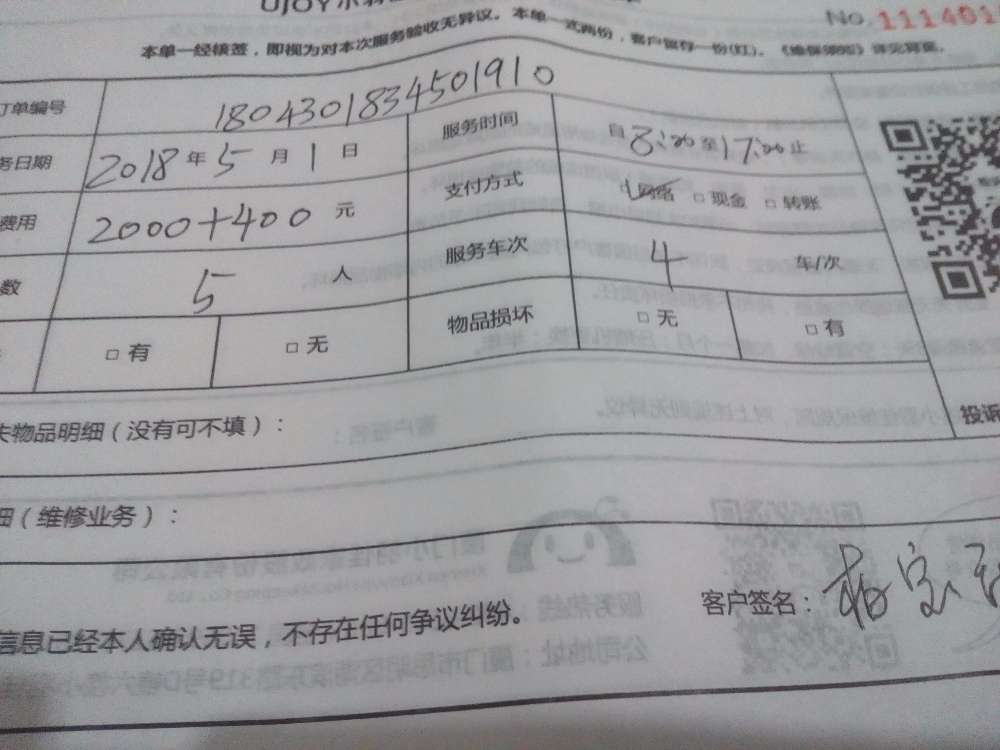 UJOY小羽
No.111401
本单一经核签，即视为对本次服务验收无异议。本单一式两份，客户留存一份(红)。
订单编号 1804301834501910
务日期 2018年5月1日 服务时间 自8:00至17:00止
费用 2000+400元 支付方式 网络 □现金 □转账
数 5人 服务车次 4 车/次
□有 □无 物品损坏 □无 □有
失物品明细（没有可不填）： 投诉
细（维修业务）：
信息已经本人确认无误，不存在任何争议纠纷。 客户签名：